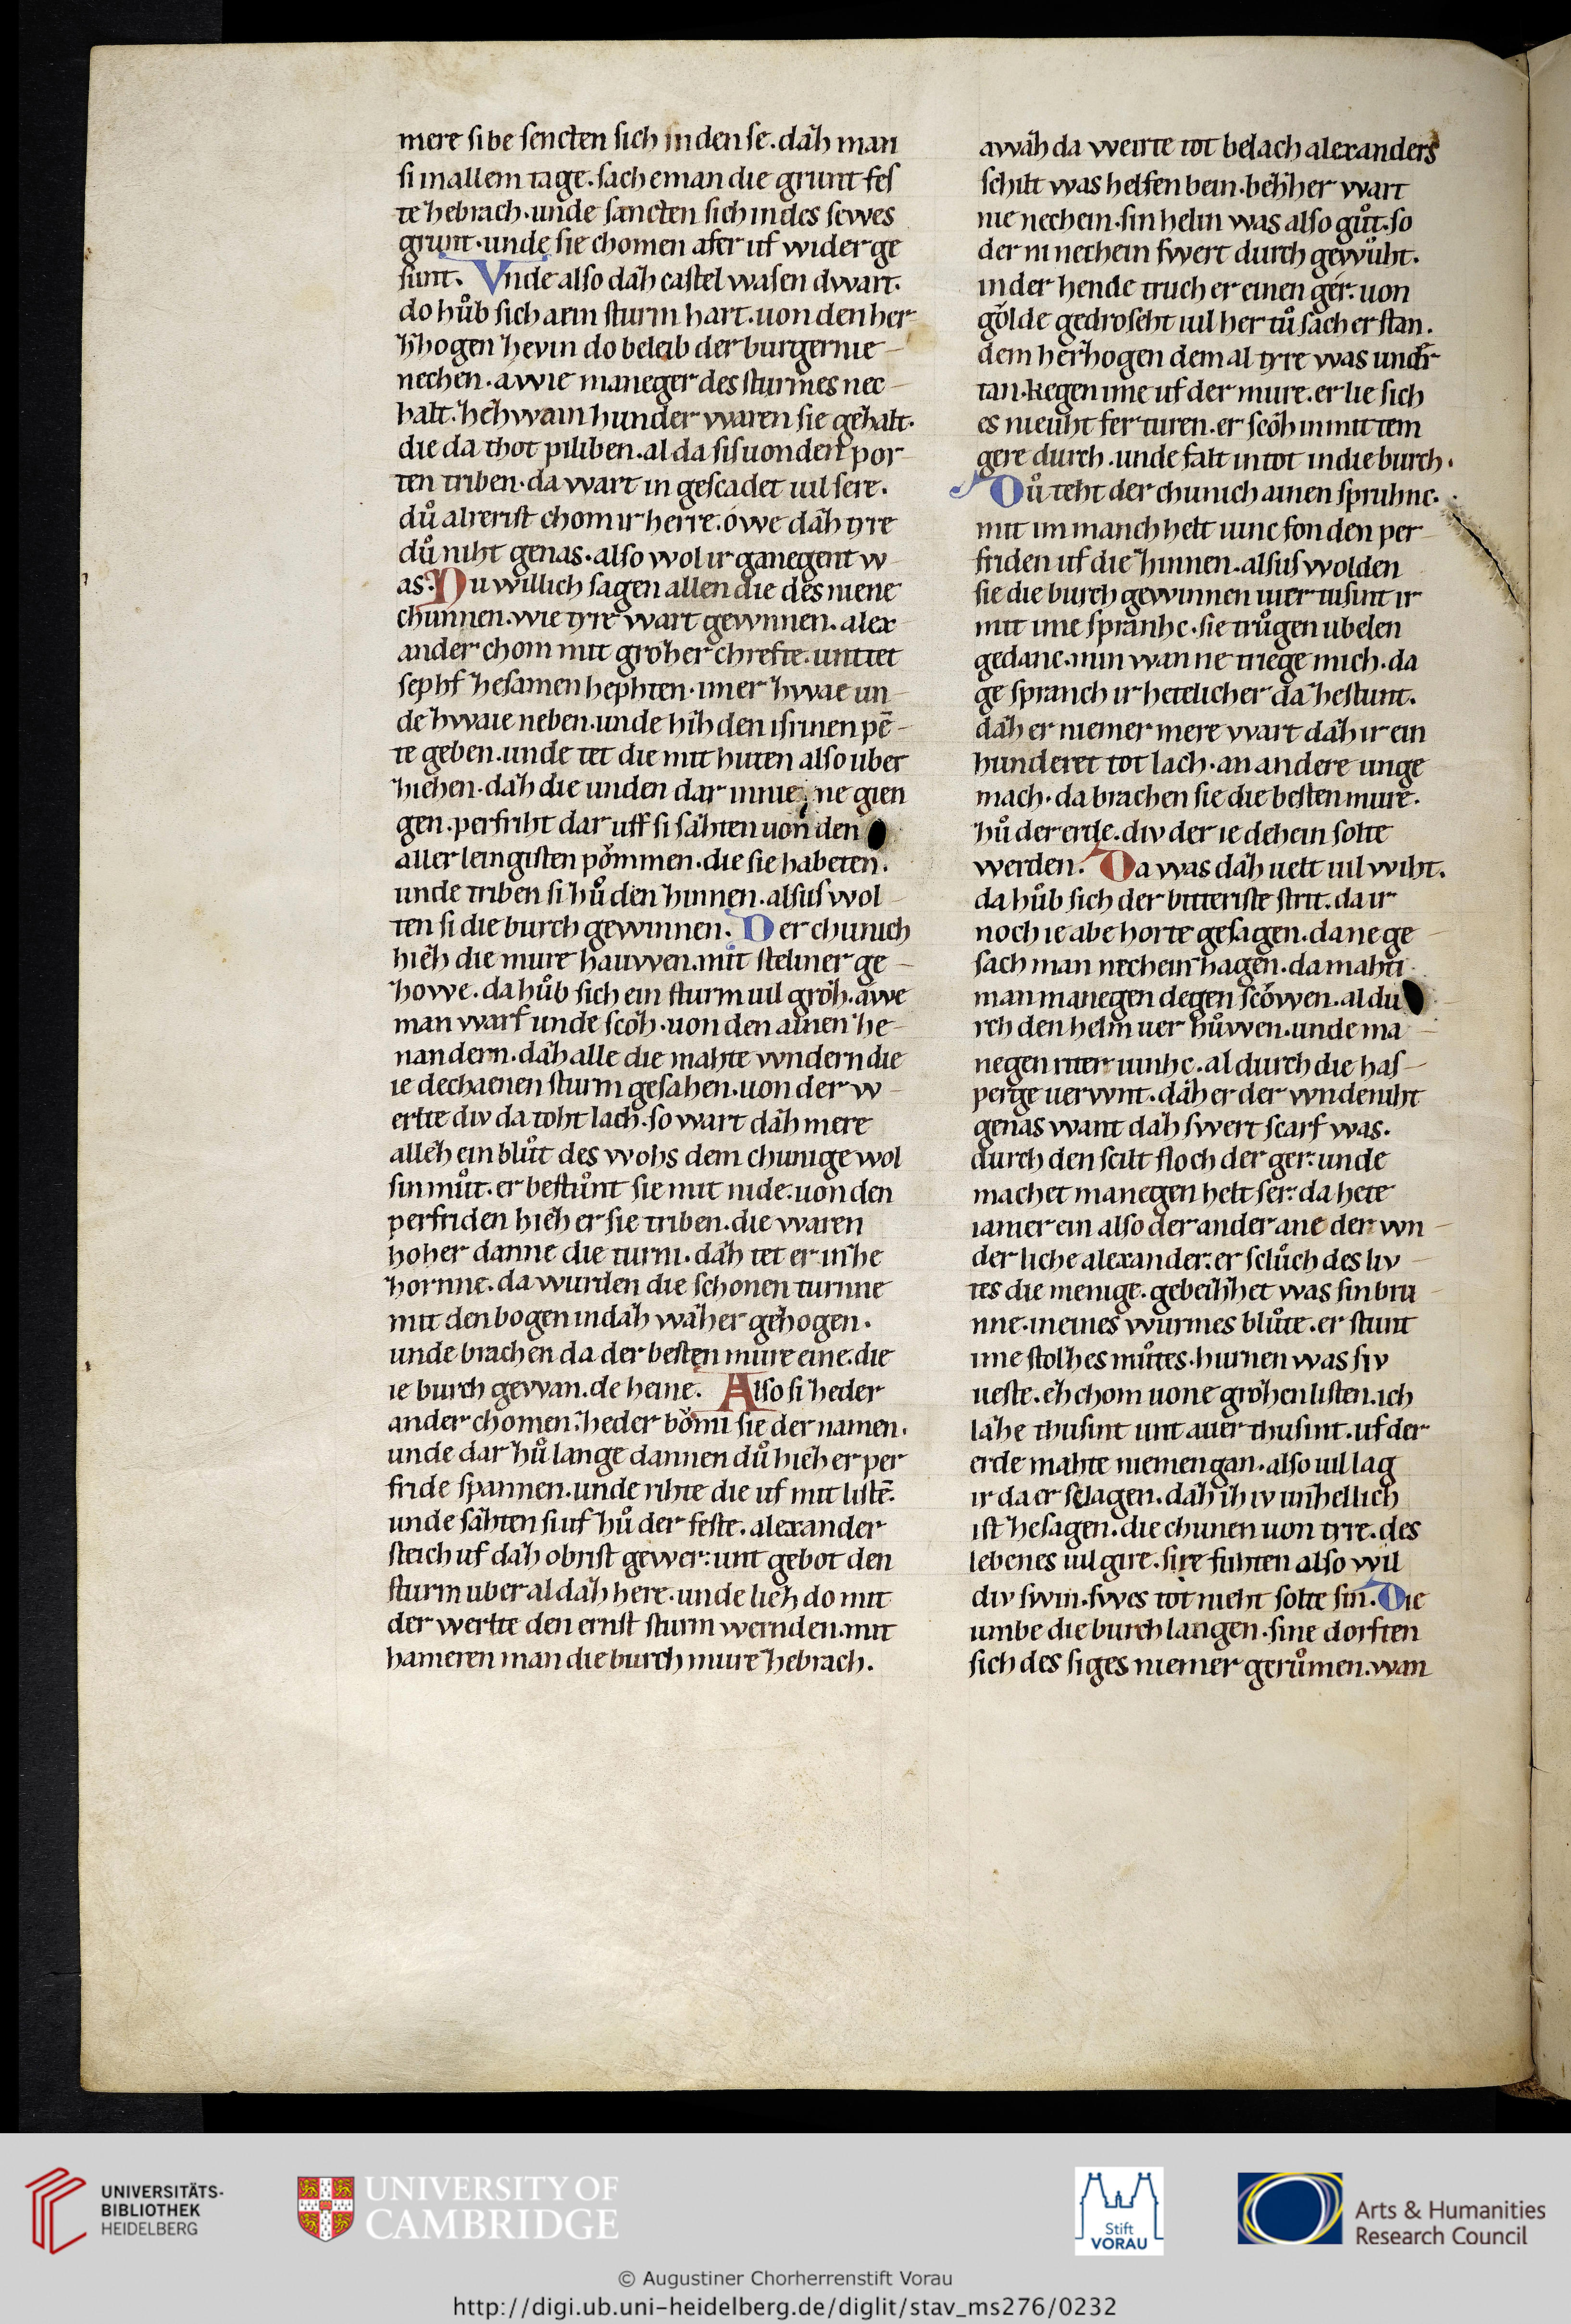 mere ſi be ſencten ſich inden ſe. daz man
ſi inallem tage. ſach eman die grunt feſ
te zebrach. unde ſancten ſich in des ſewes
grunt. unde ſie chomen afer uf wider ge
ſunt. Vnde alſo daz caſtel waſen dwart.
do hůb ſich aein ſturm hart. uon den her
zhogen zevin do beleib der burger nie
nechen. awie maneger des ſturmes nec
halt. zehwain hunder waren ſie gezalt.
die da thot piliben. al da ſiſ uonden por
ten triben. da wart in geſcadet uil ſere.
dů alrerist chom ir herre. owe daz tyre
dů niht genas. alſo wol ir ganegent w
as. Nu willich ſagen allen die des niene
chunnen. wie tyre wart gewnnen. alex
ander chom mit grozer chrefte. unt tet
ſephf zeſamen hephten. imer zwae un
de zwaie neben. unde hiz den iſrinen pē
te geben. unde tet die mit huten alſo uber
ziehen. daz die unden dar innie ne gien
gen. perfriht dar uff ſi ſazten uon den
aller leingiſten pŏmmen. die ſie habeten.
unde triben ſi zů den zinnen. alſuſ wol
ten ſi die burch gewinnen. Der chunich
hiez die mure hauwen. mit ſteliner ge
zowe. da hůb ſich ein ſturm uil groz. awe
man warf unde ſcoz. uon den ainen ze
nandern. daz alle die mahte wndern die
ie dechaenen ſturm geſahen. uon der w
erlte div da toht lach. ſo wart daz mere
allez ein blůt des wohs dem chunige wol
ſin můt. er beſtůnt ſie mit nide. uon den
perfriden hiez er ſie triben. die waren
hoher danne die turni. daz tet er in ze
zornne. da wurden die ſchonen turnne
mit den bogen indaz wazer gezogen.
unde brachen da der beſten mure eine. die
ie burch gewan. de heine. Alſo ſi zeder
ander chomen. zeder bŏmi ſie der namen.
unde dar zů lange dannen dů hiez er per
fride ſpannen. unde rihte die uf mit liſtē.
unde ſazten ſi uf zů der feſte. alexander
ſteich uf daz obriſt gewer: unt gebot den
ſturm uber al daz here. unde liez do mit
der werlte den ernſt ſturm wernden. mit
hameren man die burch mure zebrach.
awaz da weirte tot belach alexanders
ſchilt was helfen bein. bezzer wart
nie nechein. ſin helm was alſo gůt. ſo
der ni nechein ſwert durch gewuht.
in der hende truch er einen ger. uon
golde gedroſeht uil her tů ſach er ſtan.
dem herzogen dem al tyre was under
tan. kegen ime uf der mure. er lie ſich
es nieuht fer turen. er ſcoz in mit tem
gere durch. unde falt in tot in die burch.
Dů teht der chunich ainen ſpruhnc.
mit im manch helt uinc fon den per
friden uf die zinnen. alſuſ wolden
ſie die burch gewinnen uier tuſint ir
mit ime ſpranhc. ſie trůgen ubelen
gedanc. min wan ne triege mich. da
ge ſpranch ir hetelicher da zeſtunt.
daz er niemer mere wart daz ir ein
hunderet tot lach. an andere unge
mach. da brachen ſie die beſten mure.
zů der erde. div der ie dehein ſolte
werden. Da was daz uelt uil wiht.
da hůb ſich der bitteriſte ſtrit. da ir
noch ie abe horte geſagen. da ne ge
ſach man nechein zagen. da mahti
man manegen degen ſcowen. al du
rch den helm uer hůwen. unde ma
negen riter uinhc. al durch die haſ
perge uerwnt. daz er der wnde niht
genas want daz ſwert ſcarf was.
durch den ſcilt floch der ger: unde
machet manegen helt ſer: da hete
iamer ein alſo der ander ane der wn
der liche alexander: er ſclůch des liv
tes die menige. gebeihzet was ſin bru
nne. in eines wurmes blůte. er ſtunt
ime ſtolzes můtes. hurnen was ſiv
ueſte. ez chom uone grozen liſten. ich
laze thuſint unt auer thuſint. uf der
erde mahte niemen gan. alſo uil lag
ir da er ſclagen. daz iz iv unzellich
iſt zeſagen. die chunen uon tyre. des
lebenes uil gire. ſire fuhten alſo wil
div ſwin. ſwes tot nieht ſolte ſin. Die
umbe die burch langen. ſine dorften
ſich des ſiges niemer gerůmen. wan
UNIVERSITÄTS-
BIBLIOTHEK
HEIDELBERG
UNIVERSITY OF
CAMBRIDGE
Stift
VORAU
Arts & Humanities
Research Council
© Augustiner Chorherrenstift Vorau
http://digi.ub.uni-heidelberg.de/diglit/stav_ms276/0232